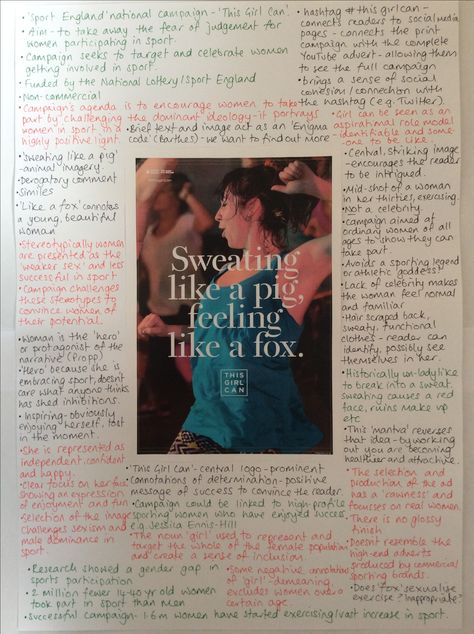 • 'Sport England' national campaign - 'This Girl Can'.
• Aim - to take away the fear of judgement for
women participating in sport.
• Campaign seeks to target and celebrate women
getting involved in sport.
• Funded by the National Lottery/Sport England
• Non-commercial
• Campaign's agenda is to encourage women to take
part by challenging the dominant ideology - it portrays
women in sport in a
highly positive light.
• Brief text and image act as an 'Enigma
code' (Barthes) - we want to find out more
• hashtag # this girl can -
connects readers to social media
pages - connects the print
campaign with the complete
YouTube advert - allowing them
to see the full campaign
• brings a sense of social
cohesion / connection with
the hashtag (e.g. Twitter).
• Girl can be seen as an
aspirational role model
- identifiable and some-
one to be like.
• 'Sweating like a pig'
- animal imagery
• Derogatory comment
• Similes
• 'Like a fox' connotes
a young, beautiful
woman
• Stereotypically women
are presented as the
'weaker sex' and less
successful in sport.
• Campaign challenges
these stereotypes to
convince women of
their potential.
• Woman is the 'hero'
or protagonist of the
narrative (Propp)
• 'Hero' because she is
embracing sport, doesn't
care what anyone thinks,
has shed inhibitions.
• Inspiring - obviously
enjoying herself, lost
in the moment.
• She is represented as
independent, confident
and happy.
• Clear focus on her face
showing an expression
of enjoyment and fun
• Selection of the image
challenges sexism and
male dominance in
sport.
Sweating
like a pig,
feeling
like a fox.
THIS
GIRL
CAN
• Central, striking image
- encourages the reader
to be intrigued.
• Mid-shot of a woman
in her thirties, exercising.
• Not a celebrity.
• Campaign aimed at
ordinary women of all
ages to show they can
take part
• Avoids a sporting legend
or athletic 'goddess'
• Lack of celebrity makes
the woman feel normal
and familiar
• Hair scraped back,
sweaty, functional
clothes - reader can
identify, possibly see
themselves in her.
• Historically un-ladylike
to break into a sweat.
Sweating causes a red
face, ruins make up
etc
• This 'mantra' reverses
that idea - by working
out you are becoming
healthier and attractive.
• 'This Girl Can' - central logo - prominent
• Connotations of determination - positive
message of success to convince the reader.
• Campaign could be linked to high-profile
sporting women who have enjoyed success
e.g. Jessica Ennis-Hill
• The noun 'girl' used to represent and
target the whole of the female population
and create a sense of inclusion.
• Some negative connotations
of 'girl' - demeaning,
excludes women over a
certain age.
• The selection and
production of the ad
has a 'rawness' and
focusses on real women.
• There is no glossy
finish
• Doesn't resemble the
high-end adverts
produced by commercial
sporting brands.
• Does 'fox' sexualise
exercise? Inappropriate?
• Research showed a gender gap in
sports participation
• 2 million fewer 14-40 yr old women
took part in sport than men
• Successful campaign - 1.6 m women have started exercising/vast increase in sport.